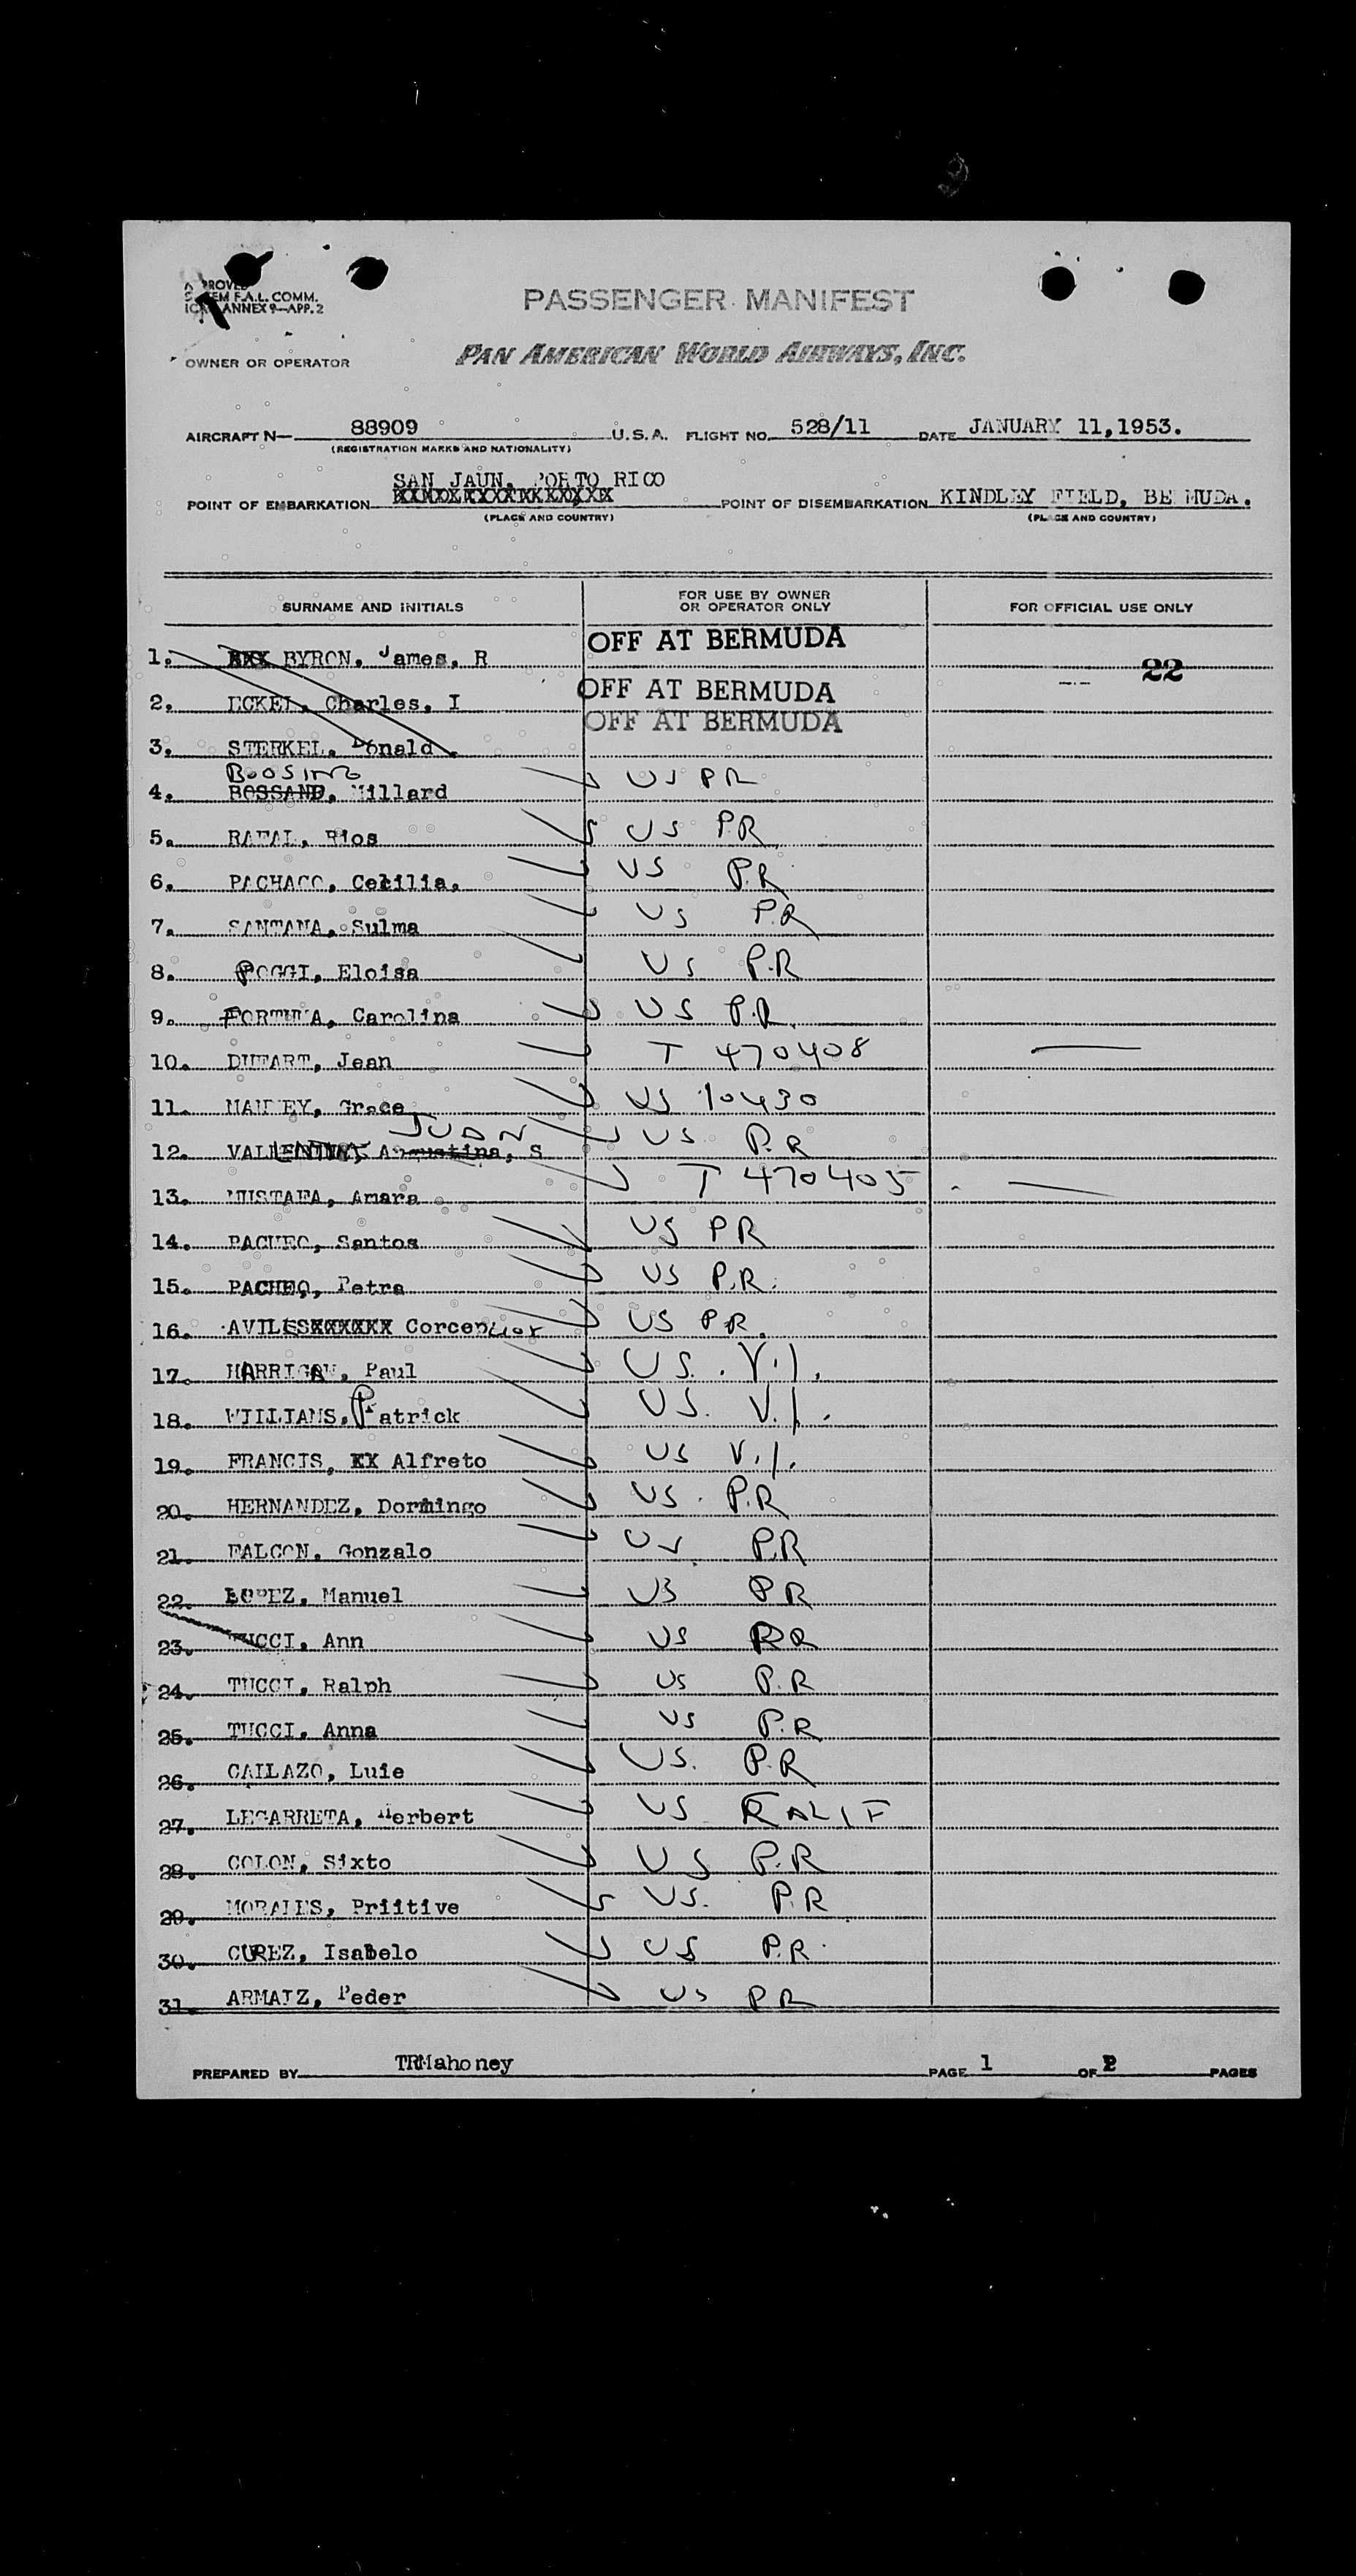 PASSENGER MANIFEST
F.A.L. COMM.
ANNEX 9—APP. 2
OWNER OR OPERATOR
PAN AMERICAN WORLD AIRWAYS, INC.
AIRCRAFT N— 88909 U.S.A. FLIGHT NO. 528/11 DATE JANUARY 11,1953.
(REGISTRATION MARKS AND NATIONALITY)
SAN JAUN, PORTO RICO
POINT OF EMBARKATION POINT OF DISEMBARKATION KINDLEY FIELD, BERMUDA.
(PLACE AND COUNTRY) (PLACE AND COUNTRY)
SURNAME AND INITIALS FOR USE BY OWNER OR OPERATOR ONLY FOR OFFICIAL USE ONLY
1. BYRON, James, R OFF AT BERMUDA 22
2. ECKEL, Charles, I OFF AT BERMUDA
3. STERKEL, Donald OFF AT BERMUDA
BOOSING
4. BOSSAND, Millard US PR
5. RAFAL, Rios US P.R
6. PACHACO, Cecilia. US P.R
7. SANTANA, Sulma US P.R
8. POGGI, Eloisa US P.R
9. Carolina US P.R.
10. DUFART, Jean T 470408
11. Grace US 10430
JUAN
12. Augustina, S US P.R
13. MUSTAFA, Amara T 470405
14. PACHEO, Santos US PR
15. PACHEO, Petra US P.R.
16. AVILES US PR.
17. HARRIGAN, Paul US. V.I.
18. WILLIAMS, Patrick US. V.I.
19. FRANCIS, XX Alfreto US V.I.
20. HERNANDEZ, Dormingo US. P.R
21. FALCON, Gonzalo US P.R
22. LOPEZ, Manuel US PR
23. TUCCI, Ann US PR
24. TUCCI, Ralph US P.R
25. TUCCI, Anna US P.R
26. CALLAZO, Luie US. P.R
27. LEGARRETA, Herbert US KALIF
28. COLON, Sixto US P.R
29. MORALES, Priitive US. P.R
30. CUREZ, Isabelo US P.R.
31. ARMAIZ, Peder US PR
PREPARED BY TRMahoney PAGE 1 OF 2 PAGES